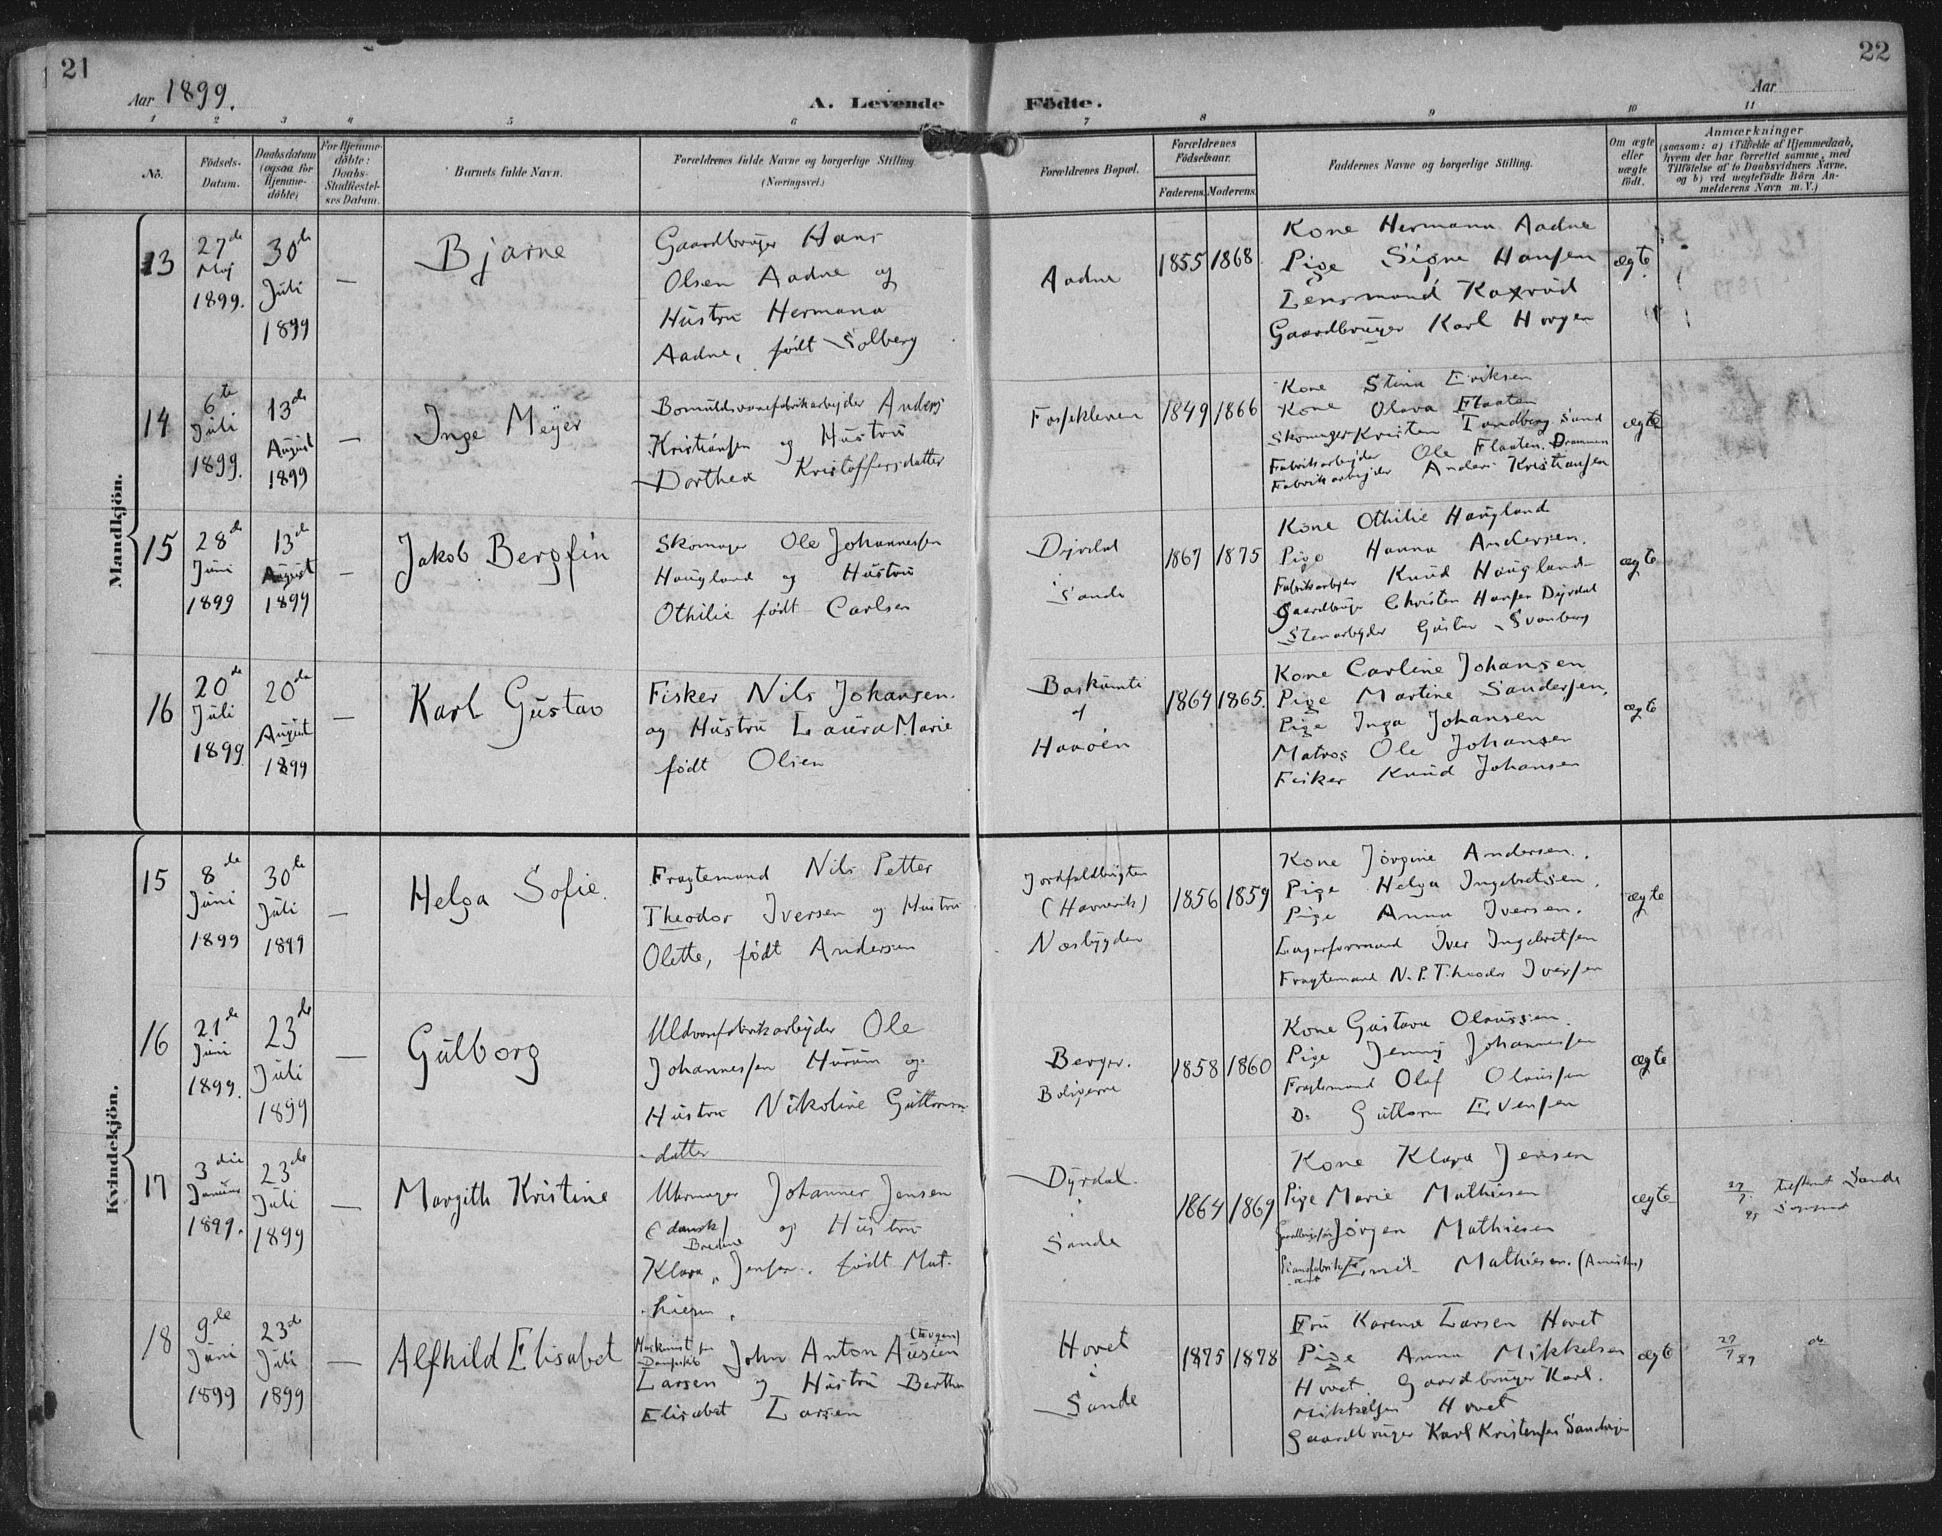 21
22
Aar 1899.
A. Levende Födte.
Aar
1 2 3 4 5 6 7 8 9 10 11
No.
Födsels-
Datum.
Daabsdatum
(ogsaa for
Hjemme-
döbte)
For Hjemme-
döbte:
Daabs-
Stadfæstel-
ses Datum.
Barnets fulde Navn.
Forældrenes fulde Navne og borgerlige Stilling
(Næringsvei.)
Forældrenes Bopæl.
Forældrenes
Födselsaar.
Faderens. Moderens.
Faddernes Navne og borgerlige Stilling.
Om ægte
eller
uægte
födt.
Anmærkninger
(saasom: a) i Tilfælde af Hjemmedaab,
hvem der har forrettet samme, med
Tilföielse af to Daabsvidners Navne,
og b) ved uægtefödte Börn An-
melderens Navn m. V.)
Mandkjön.
13
27de
Maj
1899.
30de
Juli
1899
—
Bjarne
Gaardbruger Hans
Olsen Aadne og
Hustru Hermana
Aadne, født Solberg
Aadne
1855 1868
Kone Hermana Aadne
Pige Signe Hansen
Lensmand Kaxrud
Gaardbruger Karl Horgen
ægte
14
6te
Juli
1899.
13de
August
1899
—
Inge Meyer
Bomuldsvarefabrikarbejder Anders
Kristiansen og Hustru
Dorthea Kristoffersdatter
Fossekleven
1849 1866
Kone Stina Eriksen
Kone Olava Flaaten
Skomager Kristen Tandberg Sand
Fabrikarbejder Ole Flaaten. Drammen
Fabrikarbejder Anders Kristiansen
ægte
15
28de
Juni
1899
13de
August
1899
—
Jakob Bergfin
Skomager Ole Johannessen
Haugland og Hustru
Othilie født Carlsen
Dyrdal
i
Sande
1867 1875
Kone Othilie Haugland
Pige Hanna Andersen.
Fabrikarbejder Knud Haugland
Gaardbruger Christen Hansen Dyrdal
Stenarbejder Gustav Svanberg
ægte
16
20de
Juli
1899
20de
August
1899
—
Karl Gustav
Fisker Nils Johansen.
og Hustru Laura Marie
født Olsen
Haaøen
1864 1865.
Kone Carline Johansen
Pige Martine Sandersen,
Pige Inga Johansen
Matros Ole Johansen
Fisker Knud Johansen
ægte
Kvindekjön.
15
8de
Juni
1899
30te
Juli
1899
—
Helga Sofie.
Fragtemand Nils Petter
Theodor Iversen og Hustru
Olette, født Andersen
(Havnevik)
Nesbygden
1856 1859
Kone Jørgine Andersen.
Pige Helga Ingebretsen.
Pige Anna Iversen.
Lagerformand Iver Ingebretsen
Fragtemand N. P. Theodor Iversen
ægte
16
21de
Juni
1899.
23de
Juli
1899
—
Gulborg
Uldvarefabrikarbejder Ole
Johannessen Hurum og
Hustru Nikoline Guttorms-
datter
Berger.
Boligerne
1858 1860
Kone Gustava Olaussen.
Pige Jenny Johannessen
Fragtemand Olaf Olaussen
Do Guttorm Evensen
ægte
17
3die
Januar
1899.
23de
Juli
1899
—
Margith Kristine
Uhrmager Johannes Jensen
(dansk) og Hustru
Klara Jensen. født Mat-
hiesen.
Dyrdal.
i
Sande
1864 1869
Kone Klara Jensen
Pige Marie Mathiesen
Jørgen Mathiesen
Emil Mathiesen. (Amerika)
ægte
27/7 99 Sande
18
9de
Juni
1899
23de
Juli
1899
—
Alfhild Elisabet
John Anton August
Larsen og Hustru Bertha
Elisabet Larsen
Hovet
i
Sande
1875 1878
Fru Karense Larsen Hovet
Pige Anna Mikkelsen
Hovet. Gaardbruger Karl
Mikkelsen Hovet
Gaardbruger Karl Kristensen
ægte
27/7 99 do